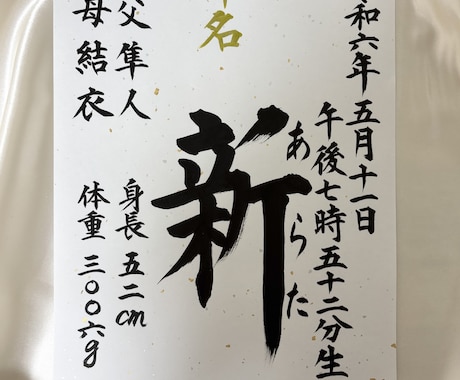 和六年五月十一日
午後七時五十二分生
あらた
新
名
父 隼人 身長 五二cm
母 結衣 体重 三〇〇六g